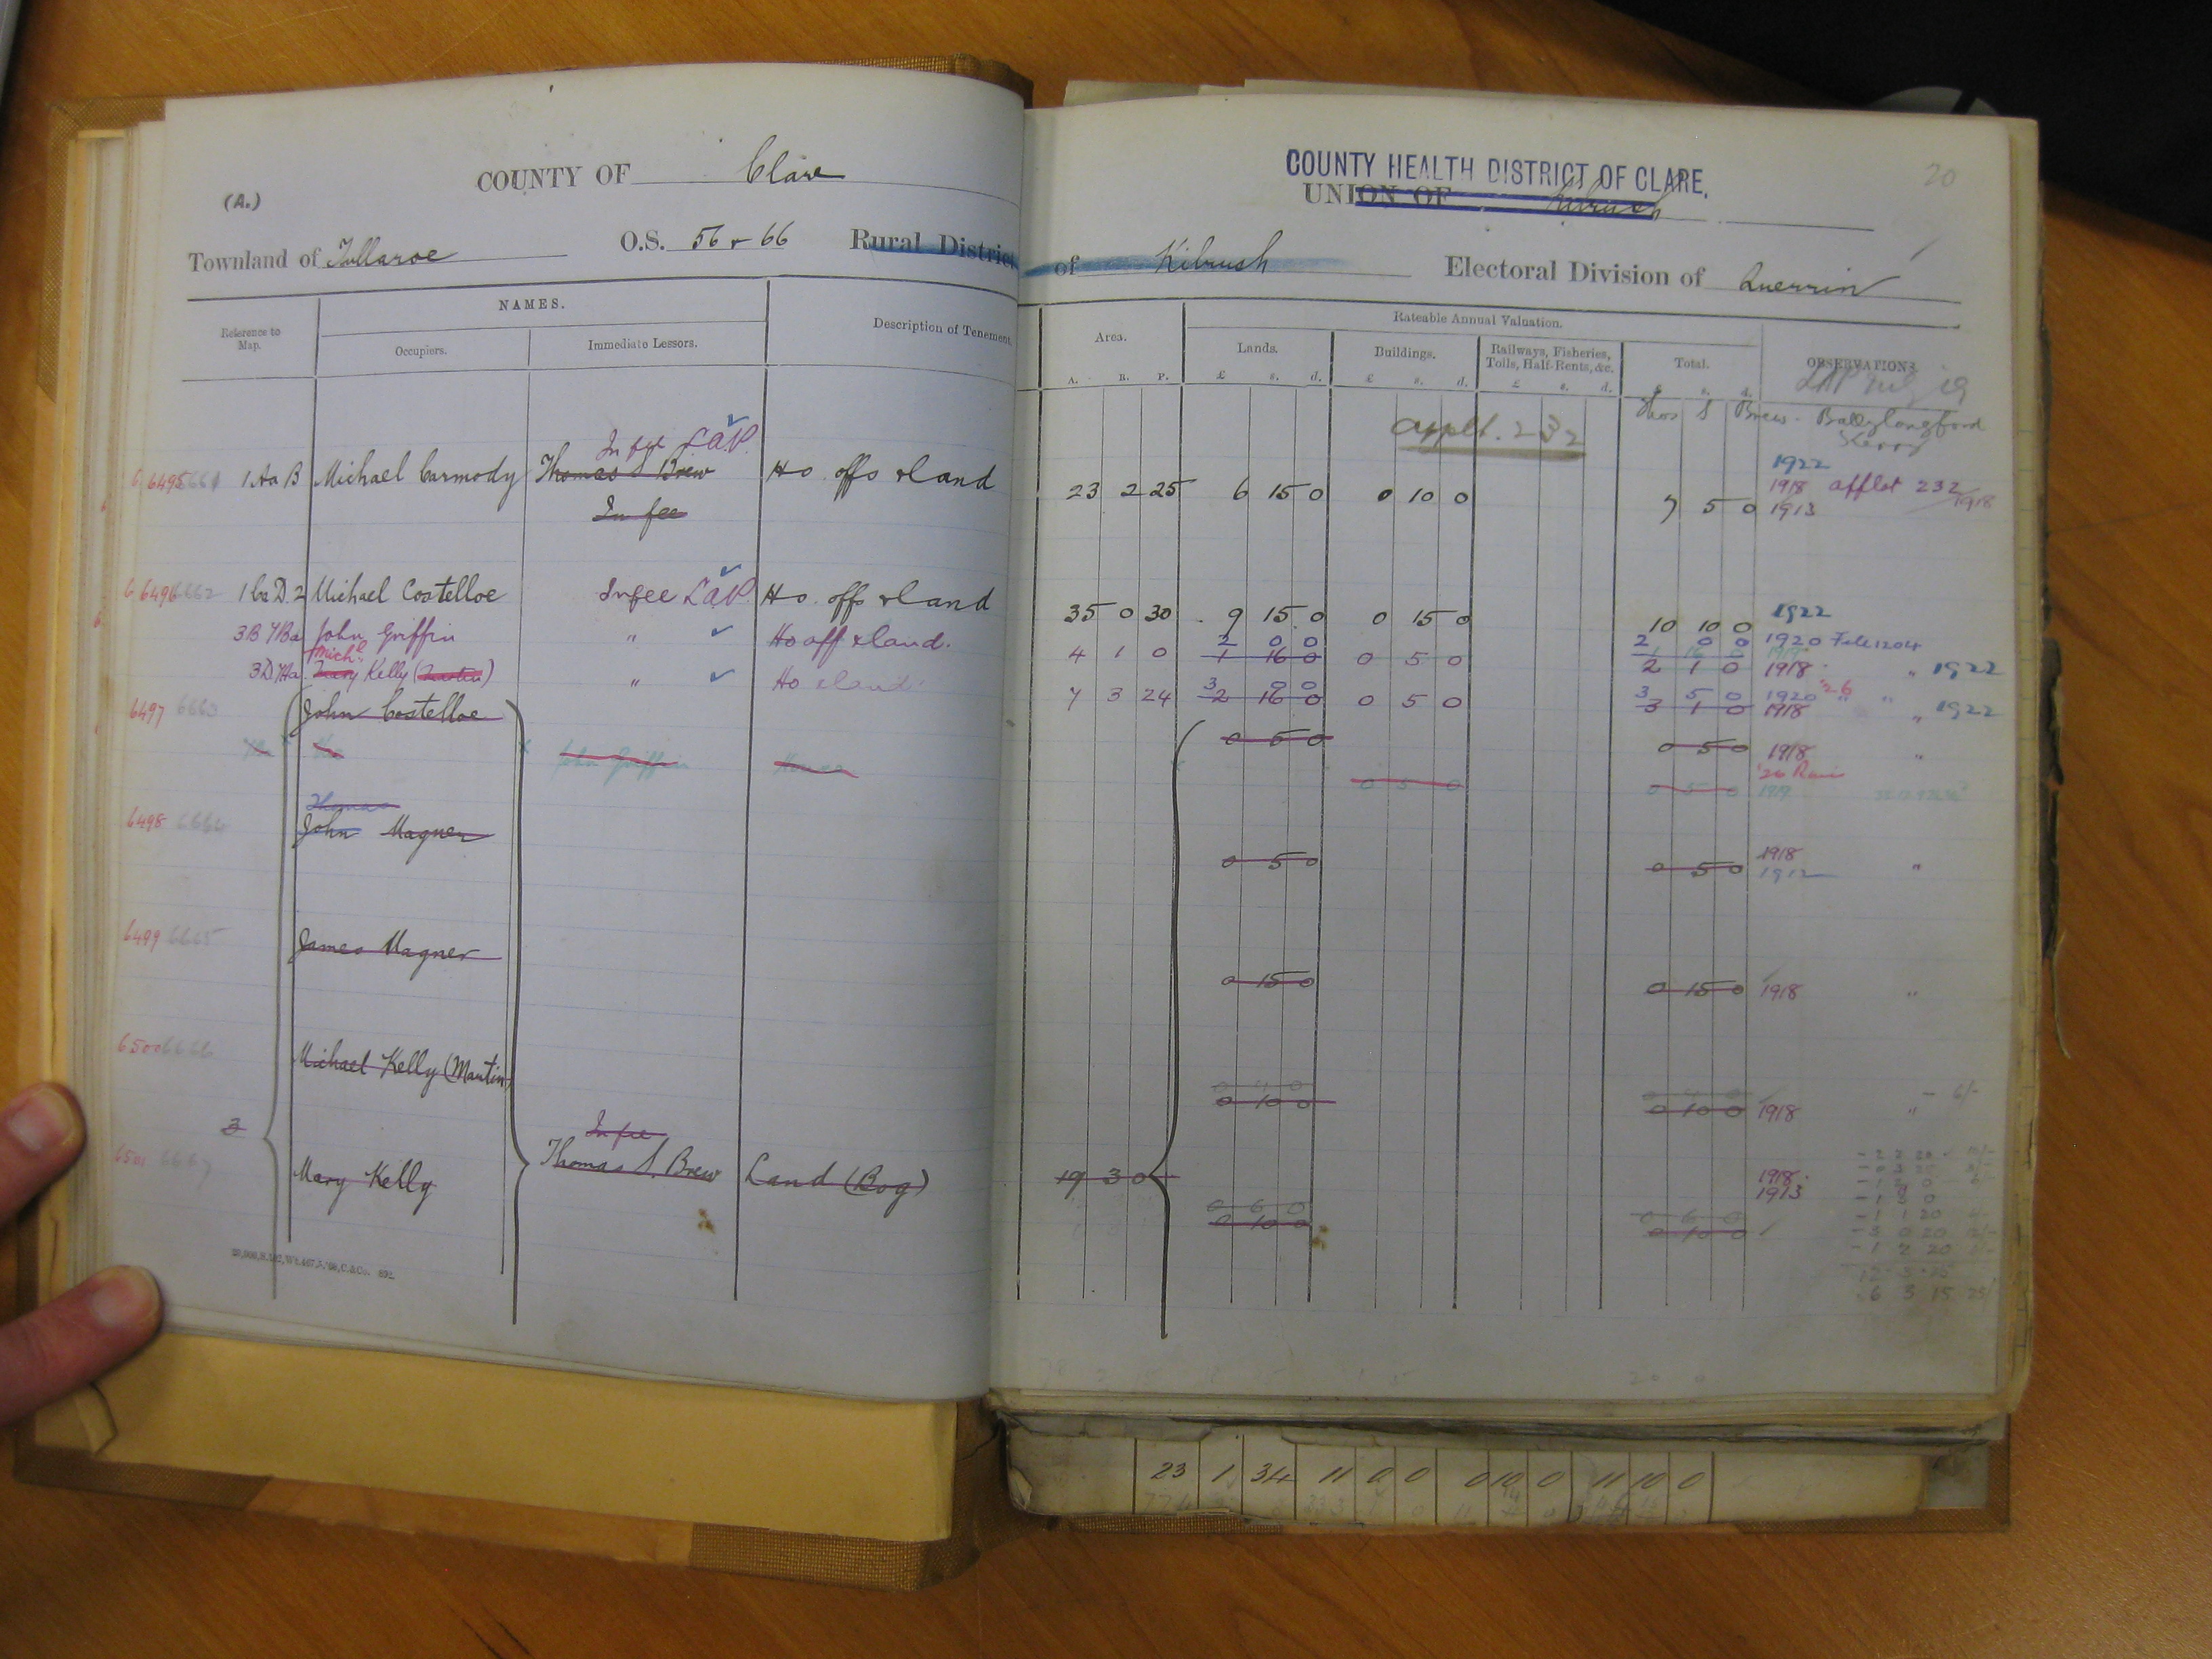 COUNTY OF Clare
(A.)
Townland of Tullaroe O.S. 56 & 66 Rural District
Reference to Map.
NAMES.
Occupiers.
Immediate Lessors.
Description of Tenement
In fee L.A.P.
6495 6661 1 Aa B Michael Carmody Thomas S Brew Ho. offs & land
In fee
6496 6662 1 Ca D. 2 Michael Costelloe In fee L.A.P. Ho. offs & land
3B John Griffin " Ho off & land.
Michl
3D Mary Kelly " Ho & land.
6497 6663 John Costelloe
John Griffin House
Thomas
6498 6664 John Magner
6499 6665 James Magner
6500 6666 Michael Kelly (Martin)
3
In fee
6501 6667 Mary Kelly Thomas S. Brew Land (Bog)
COUNTY HEALTH DISTRICT OF CLARE.
UNION OF Kilrush
20
of Kilrush Electoral Division of Querrin
Area.
A. R. P.
Rateable Annual Valuation.
Lands.
£ s. d.
Buildings.
£ s. d.
Railways, Fisheries, Tolls, Half-Rents, &c.
£ s. d.
Total.
£ s. d.
OBSERVATIONS
Thos S Brew. Ballylongford
Kerry
applt. 232
1922
1918 applot 232/1918
23 2 25 6 15 0 0 10 0 7 5 0 1913
35 0 30 9 15 0 0 15 0 10 10 0 1922
2 0 0 2 0 0 1920 File 1204
4 1 0 1 16 0 0 5 0 2 1 0 1918 " 1922
3 0 0 3 5 0 1920 '26 "
7 3 24 2 16 0 0 5 0 3 1 0 1918 " 1922
0 5 0 0 5 0 1918 "
0 5 0 0 5 0 1919
0 5 0 0 5 0 1918
1912 "
0 15 0 0 15 0 1918 "
0 4 0 0 4 0 - 6/-
0 10 0 0 10 0 1918 "
19 3 0 1918
1913
0 6 0 0 6 0
0 10 0 0 10 0
6 3 15
23 1 34 11 0 0 0 10 0 11 10 0